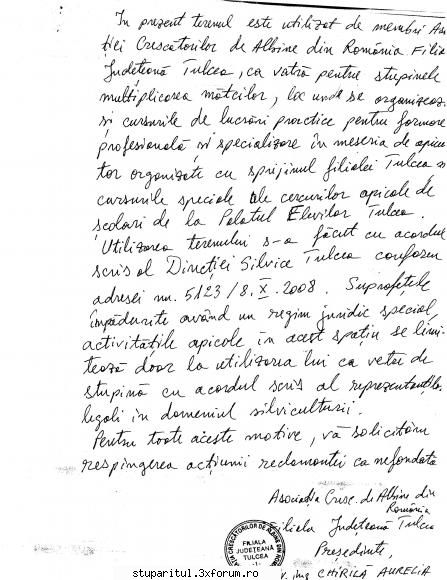 În prezent terenul este utilizat de membri Aso
ției Crescătorilor de Albine din România Filia
Județeană Tulcea, ca vatră pentru stupinele
multiplicarea mătcilor, loc unde se organizeaz
și cursurile de lucrări practice pentru formare
profesională și specializare în meseria de apicu
tor organizate cu sprijinul filialei Tulcea și
cursurile speciale ale cercurilor apicole de
școlari de la Palatul Elevilor Tulcea.
Utilizarea terenului s-a făcut cu acordul
scris al Direcției Silvice Tulcea conform
adresei nr. 5123/8.X.2008. Suprafețele
împădurite având un regim juridic special,
activitățile apicole în acest spațiu se limi-
tează doar la utilizarea lui ca vatră de
stupină cu acordul scris al reprezentanților
legali în domeniul silviculturii.
Pentru toate aceste motive, vă solicităm
respingerea acțiunii reclamantei ca nefondată
Asociația Cresc. de Albine din
România
Filiala Județeană Tulcea
Președinte,
ing CHIRILĂ AURELIA
CRESCĂTORILOR DE ALBINE DIN
FILIALA
JUDEȚEANĂ
TULCEA
stuparitul.3xforum.ro